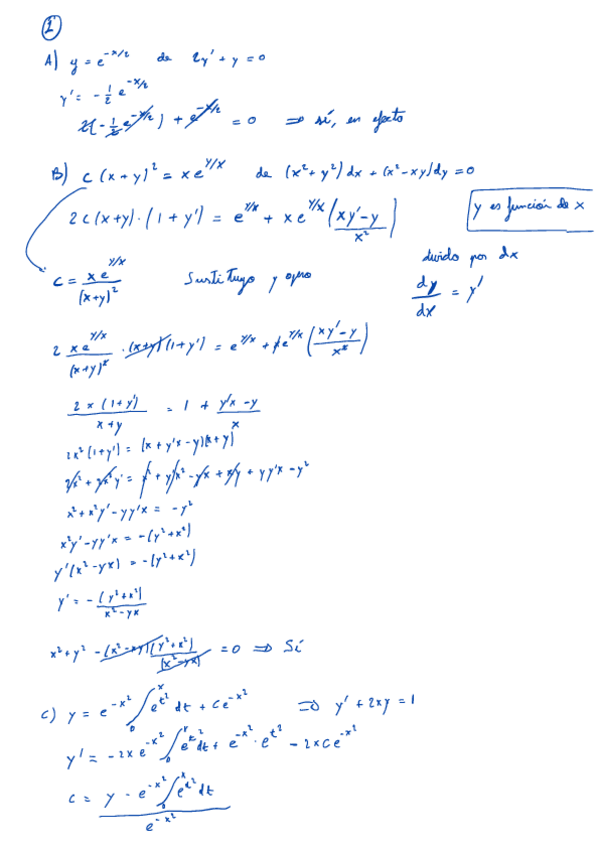 1
A) y = e^{-x/2} de 2y' + y = 0
y' = -\frac{1}{2} e^{-x/2}
2(-\frac{1}{2} e^{-x/2}) + e^{-x/2} = 0 ⇒ sí, en efecto
B) c(x+y)^2 = x e^{y/x} de (x^2+y^2)dx + (x^2-xy)dy = 0
2c(x+y)·(1+y') = e^{y/x} + x e^{y/x} (\frac{xy'-y}{x^2})
y es función de x
c = \frac{x e^{y/x}}{(x+y)^2} Sustituyo y opero
divido por dx
\frac{dy}{dx} = y'
2 \frac{x e^{y/x}}{(x+y)^2} · (x+y)(1+y') = e^{y/x} + x e^{y/x} (\frac{xy'-y}{x^2})
\frac{2x(1+y')}{x+y} = 1 + \frac{y'x-y}{x}
2x^2(1+y') = (x+y'x-y)(x+y)
2x^2 + 2x^2y' = x^2 + y'x^2 - yx + xy + yy'x - y^2
x^2 + x^2y' - yy'x = -y^2
x^2y' - yy'x = -(y^2+x^2)
y'(x^2-yx) = -(y^2+x^2)
y' = -\frac{(y^2+x^2)}{x^2-yx}
x^2+y^2 - \frac{(x^2-xy)(y^2+x^2)}{(x^2-yx)} = 0 ⇒ Sí
C) y = e^{-x^2} \int_0^x e^{t^2} dt + ce^{-x^2} ⇒ y' + 2xy = 1
y' = -2x e^{-x^2} \int_0^x e^{t^2} dt + e^{-x^2} · e^{t^2} - 2xce^{-x^2}
c = \frac{y - e^{-x^2} \int_0^x e^{t^2} dt}{e^{-x^2}}